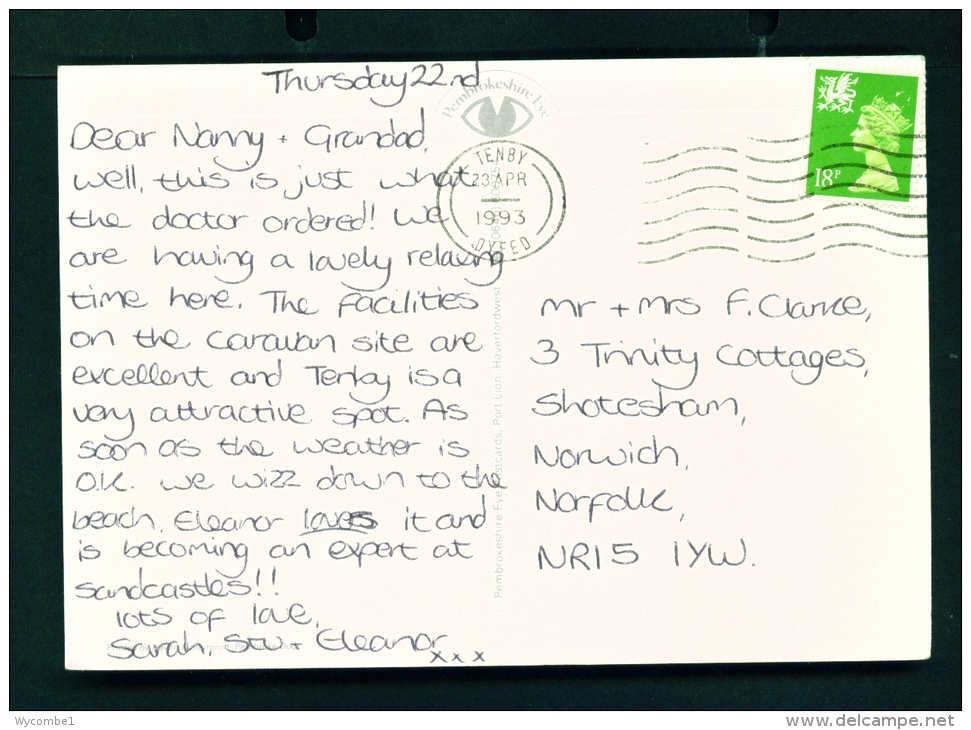 Thursday 22nd
Dear Nanny + Grandad,
Well, this is just what
the doctor ordered! We
are having a lovely relaxing
time here. The facilities
on the caravan site are
excellent and Tenby is a
very attractive spot. As
soon as the weather is
O.K. we wizz down to the
beach. Eleanor loves it and
is becoming an expert at
sandcastles!!
lots of love,
Sarah, Stu + Eleanor
x x x
Pembrokeshire Eye
TENBY
23 APR
1993
DYFED
18P
Mr + Mrs F. Clarke,
3 Trinity Cottages,
Shotesham,
Norwich,
Norfolk,
NR15 1YW.
Pembrokeshire Eye Postcards, Port Lion, Haverfordwest
Wycombe1
www.delcampe.net